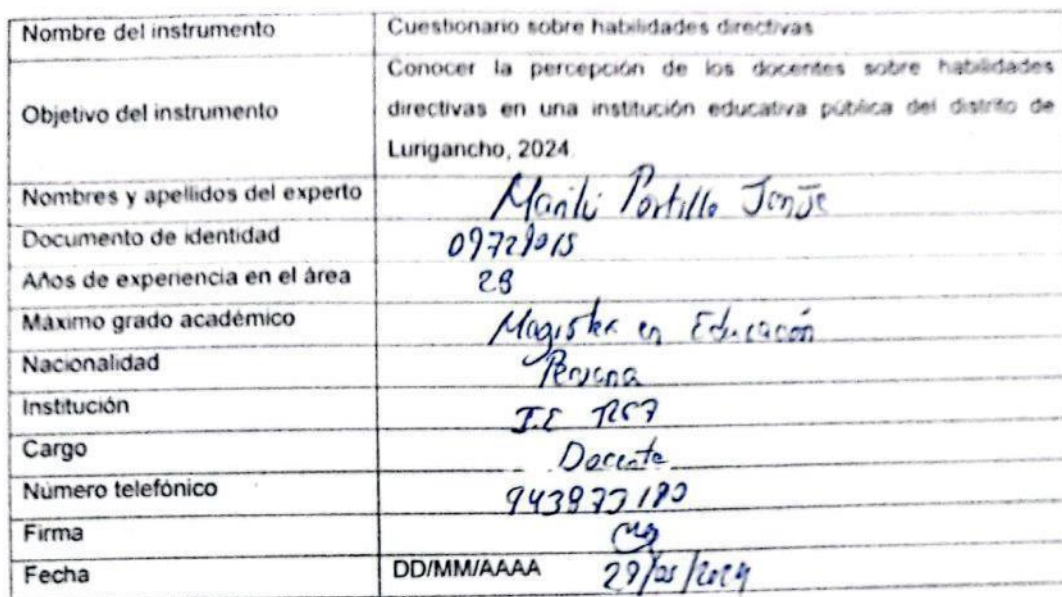 Nombre del instrumento
Cuestionario sobre habilidades directivas
Objetivo del instrumento
Conocer la percepción de los docentes sobre habilidades
directivas en una institución educativa pública del distrito de
Lurigancho, 2024.
Nombres y apellidos del experto
Portillo
Documento de identidad
Años de experiencia en el área
Máximo grado académico
Magister en Educación
Nacionalidad
Peruana
Institución
I.E
Cargo
Docente
Número telefónico
Firma
Fecha
DD/MM/AAAA